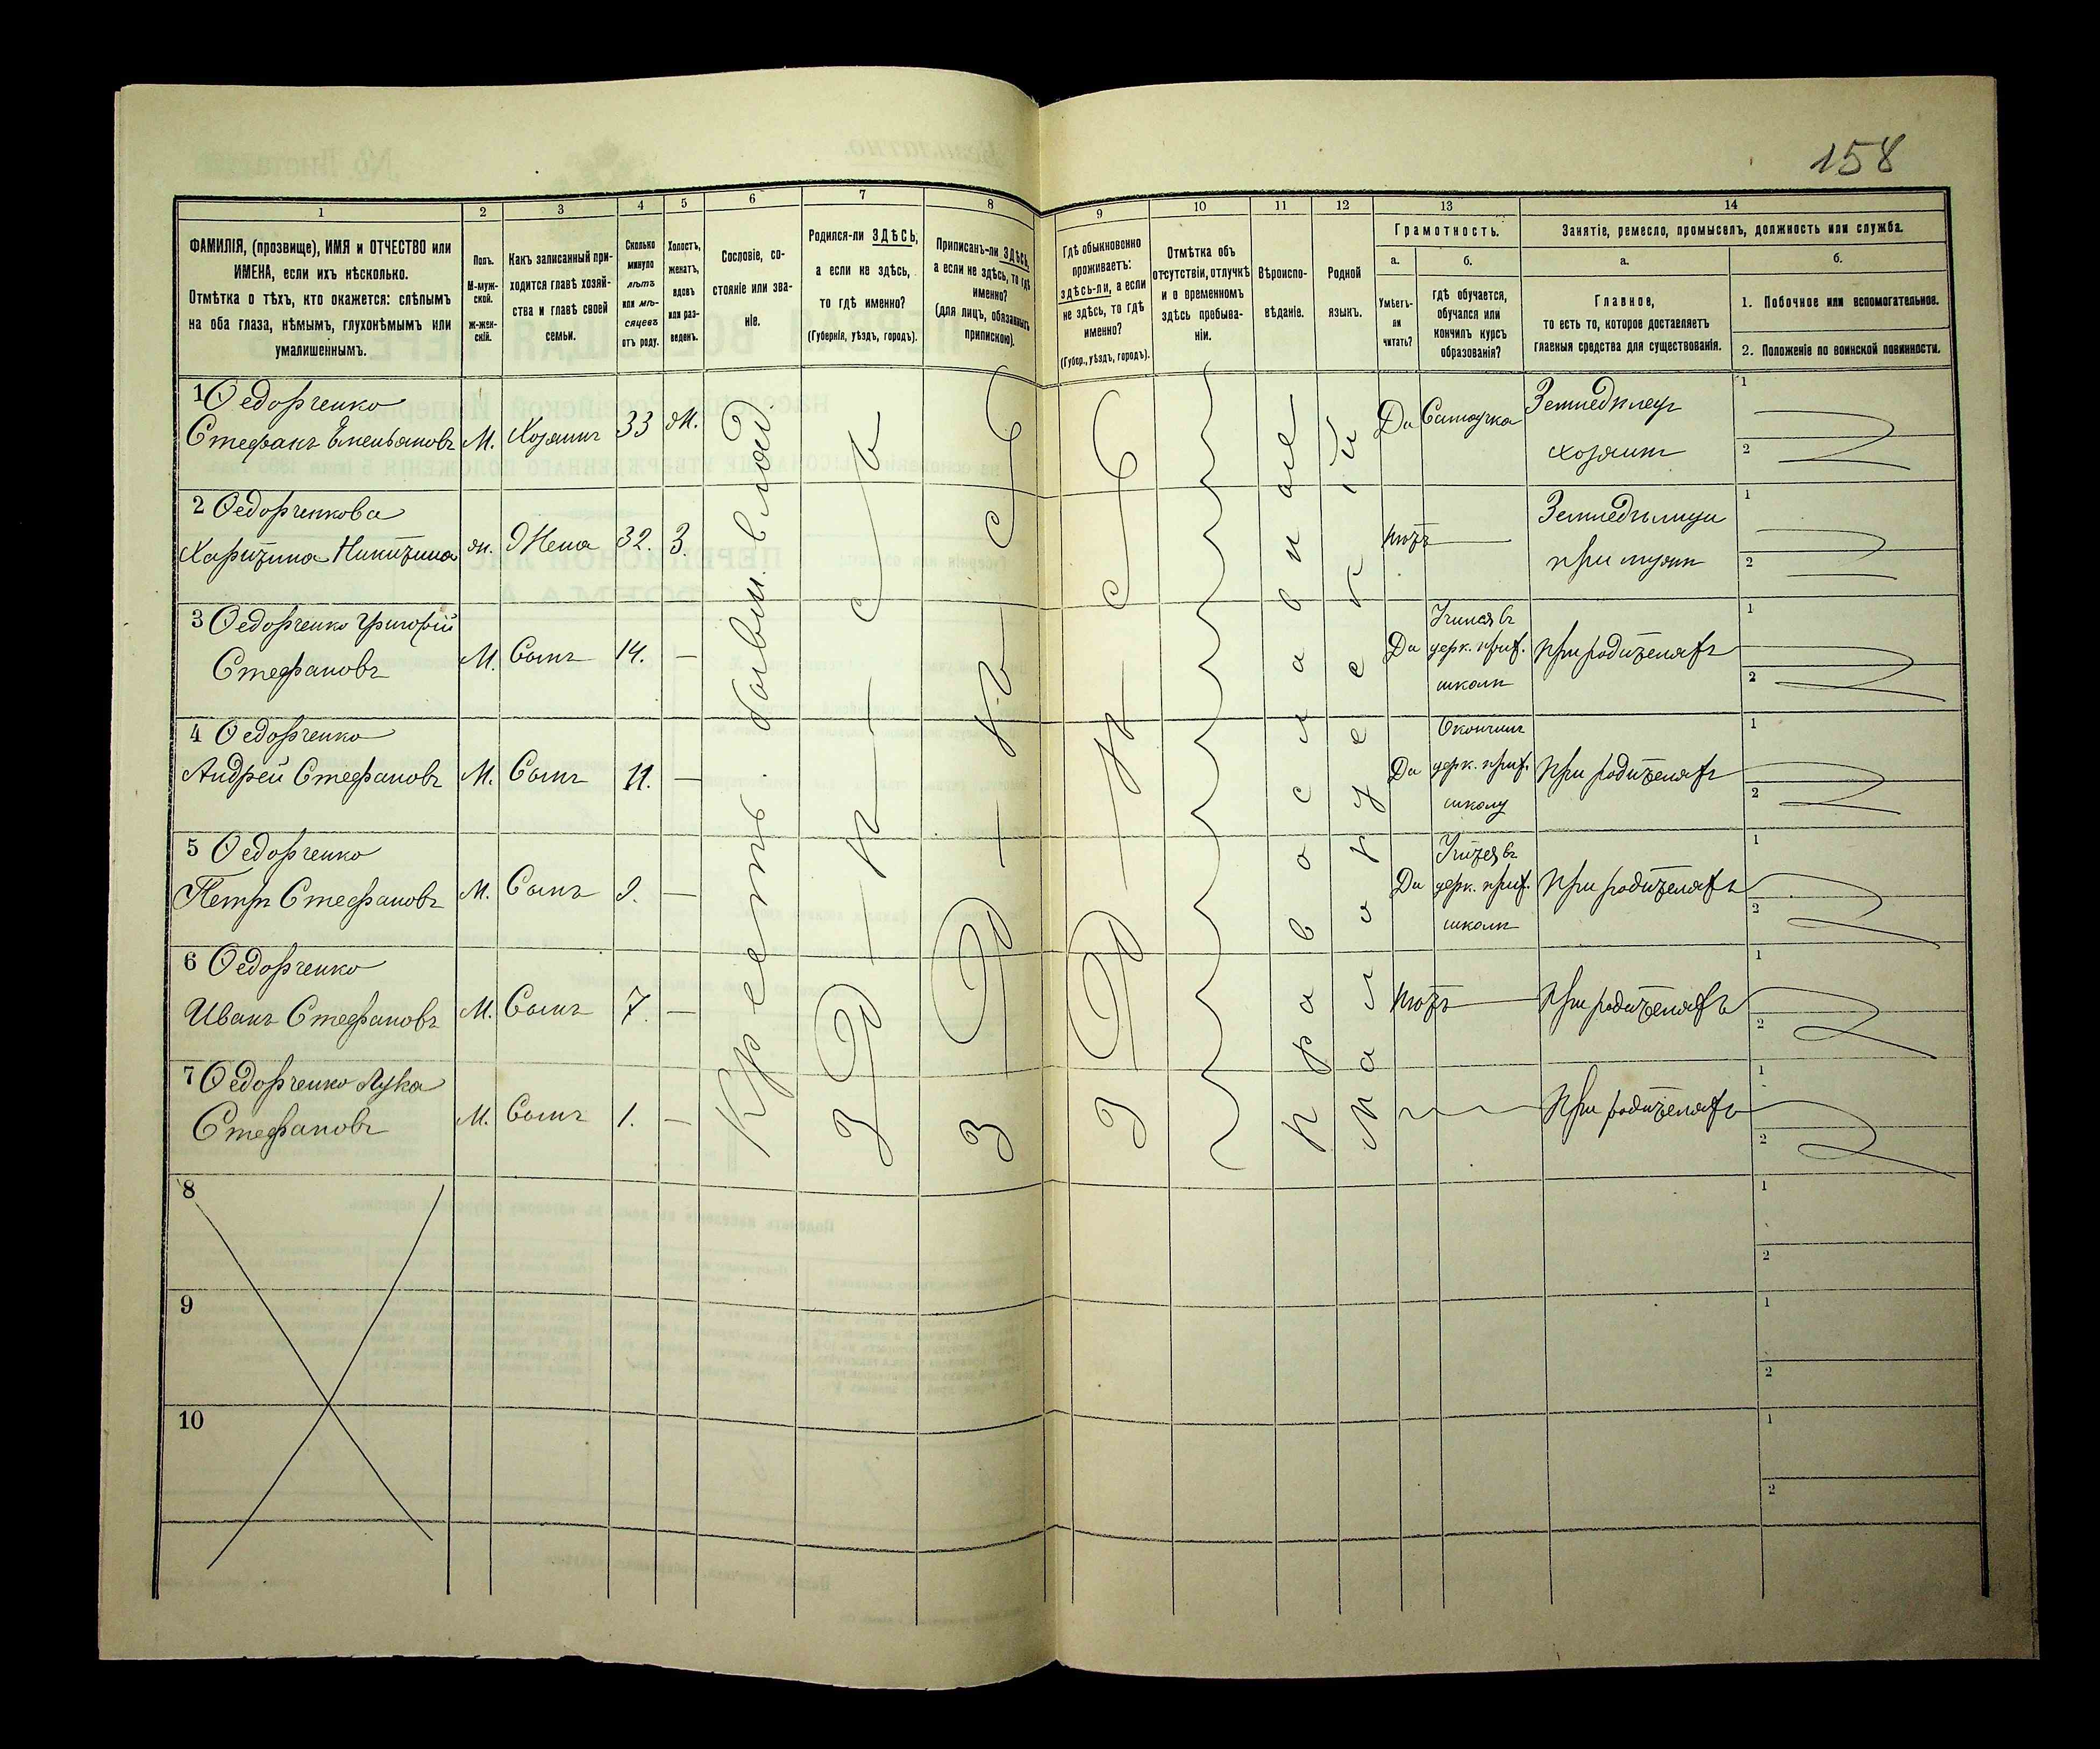 158
1
2
3
4
5
6
7
8
9
10
11
12
13
14
ФАМИЛІЯ, (прозвище), ИМЯ и ОТЧЕСТВО или
ИМЕНА, если ихъ нѣсколько.
Отмѣтка о тѣхъ, кто окажется: слѣпымъ
на оба глаза, нѣмымъ, глухонѣмымъ или
умалишеннымъ.
Полъ.
М-муж-
ской.
ж-жен-
скій.
Какъ записанный при-
ходится главѣ хозяй-
ства и главѣ своей
семьи.
Сколько
минуло
лѣтъ
или мѣ-
сяцевъ
отъ роду.
Холостъ,
женатъ,
вдовъ
или раз-
веденъ.
Сословіе, со-
стояніе или зва-
ніе.
Родился-ли ЗДѢСЬ,
а если не здѣсь,
то гдѣ именно?
(Губернія, уѣздъ, городъ).
Приписанъ-ли ЗДѢСЬ,
а если не здѣсь, то гдѣ
именно?
(для лицъ, обязанныхъ
припискою).
Гдѣ обыкновенно
проживаетъ:
здѣсь-ли, а если
не здѣсь, то гдѣ
именно?
(Губер., уѣздъ, городъ).
Отмѣтка объ
отсутствіи, отлучкѣ
и о временномъ
здѣсь пребыва-
ніи.
Вѣроиспо-
вѣданіе.
Родной
языкъ.
Грамотность.
а.
Умѣетъ-
ли
читать?
б.
гдѣ обучается,
обучался или
кончилъ курсъ
образованія?
Занятіе, ремесло, промыселъ, должность или служба.
а.
Главное,
то есть то, которое доставляетъ
главныя средства для существованія.
б.
1. Побочное или вспомогательное.
2. Положеніе по воинской повинности.
1 Ѳедорченко
Стефанъ Емельяновъ М. Хозяинъ 33 Ж. Да Самоучка Земледѣлец
хозяинъ
1
2
2 Ѳедорченкова
Харитина Никитина ж. Жена 32. З. нѣтъ Земледѣлица
при мужѣ
1
2
3 Ѳедорченко Григорій
Стефановъ М. Сынъ 14. — Да
церк. прих.
школѣ
при родителяхъ
1
2
4 Ѳедорченко
Андрей Стефановъ М. Сынъ 11. — Да
Окончил
церк. прих.
школу
при родителяхъ
1
2
5 Ѳедорченко
Петръ Стефановъ М. Сынъ 9. — Да
Учится въ
церк. прих.
школѣ
при родителяхъ
1
2
6 Ѳедорченко
Иванъ Стефановъ М. Сынъ 7. — нѣтъ при родителяхъ
1
2
7 Ѳедорченко Лука
Стефановъ М. Сынъ 1. — при родителяхъ
1
2
Крестъ.
З Д Ѣ С Ь
З Д Ѣ С Ь
З Д Ѣ С Ь
Православное
Малорусскій
8
1
2
9
1
2
10
1
2